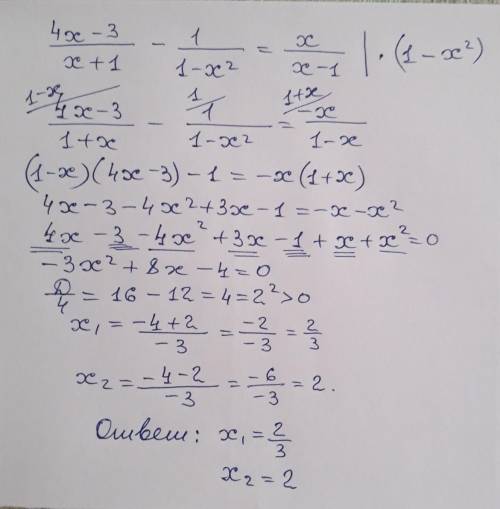 (4x-3)/(x+1) - 1/(1-x²) = x/(x-1) | · (1-x²)
1-x/ (4x-3)/(1+x) - 1/ 1/(1-x²) = 1+x/ -x/(1-x)
(1-x)(4x-3)-1=-x(1+x)
4x-3-4x²+3x-1=-x-x²
4x-3-4x²+3x-1+x+x²=0
-3x²+8x-4=0
D/4 = 16-12=4=2²>0
x₁ = (-4+2)/(-3) = (-2)/(-3) = 2/3
x₂ = (-4-2)/(-3) = (-6)/(-3) = 2.
Ответ: x₁ = 2/3
x₂ = 2